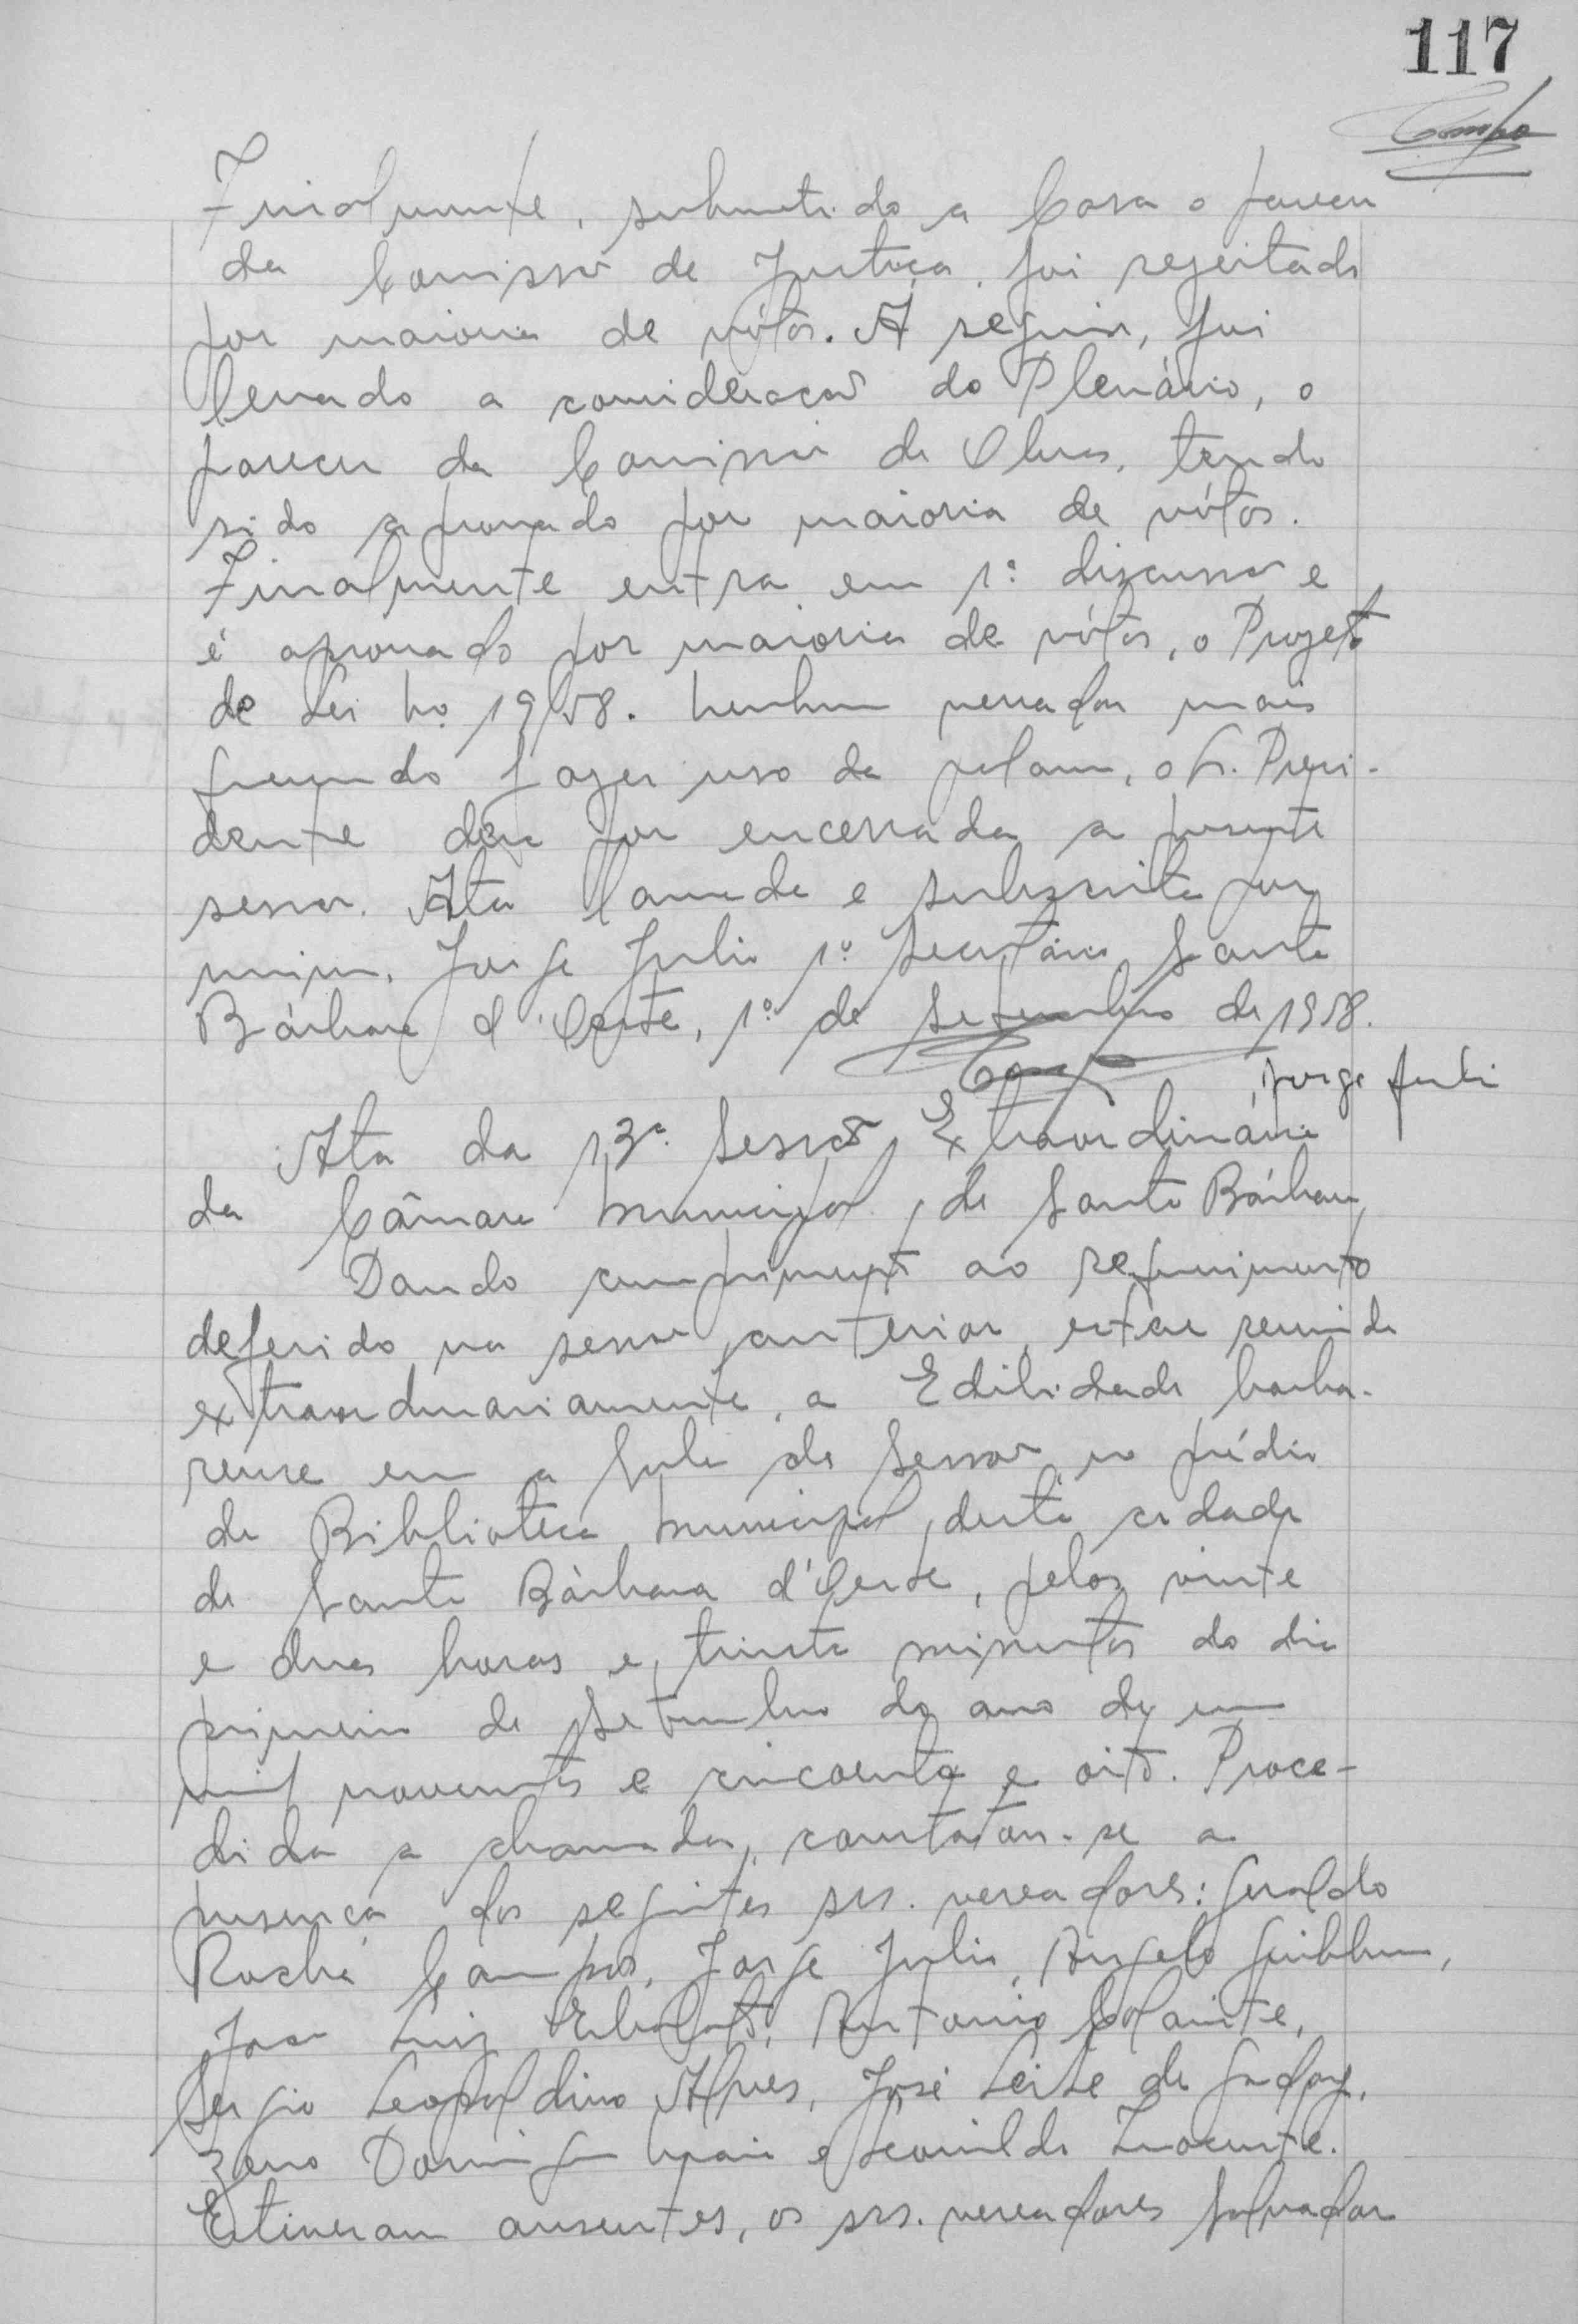 117
Campos
Finalmente, submetido a Casa o parecer
da Comissão de Justiça, foi rejeitado
por maioria de vótos. A seguir, foi
levado a consideração do Plenário, o
parecer da Comissão de Obras, tendo
sido aprovado por maioria de vótos.
Finalmente entra em 1ª discussão e
é aprovado por maioria de vótos, o Projeto
de Lei No. 19/58. Nenhum vereador mais
querendo fazer uso da palavra, o Sr. Presi-
dente deu por encerrada a presente
sessão. Ata lavrada e subscrita por
mim, Jorge Julio 1º Secretário Santa
Bárbara d'Oeste, 1º de Setembro de 1958.
Jorge Julio
Ata da 13ª Sessão Extraordinária
da Câmara Municipal de Santa Bárbara
Dando cumprimento ao requerimento
deferido na sessão anterior, esteve reunida
extraordinariamente, a Edilidade barba-
rense em a Sala de Sessão no prédio
da Biblioteca Municipal desta cidade
de Santa Bárbara d'Oeste, pelas vinte
e duas horas e trinta minutos do dia
primeiro de Setembro do ano de um
mil novecentos e cincoenta e oito. Proce-
dida a chamada, constatou-se a
presença dos seguintes srs. vereadores: Geraldo
Rocha Campos, Jorge Julio, Angelo
Luiz Antonio
Sergio Leopoldino Alves, José Leite de Godoy,
Zeno Domingos Maia e Leonildo Inocente.
Estiveram ausentes, os srs. vereadores Salvador